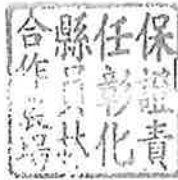 保證責
任彰化
縣員林
合作場